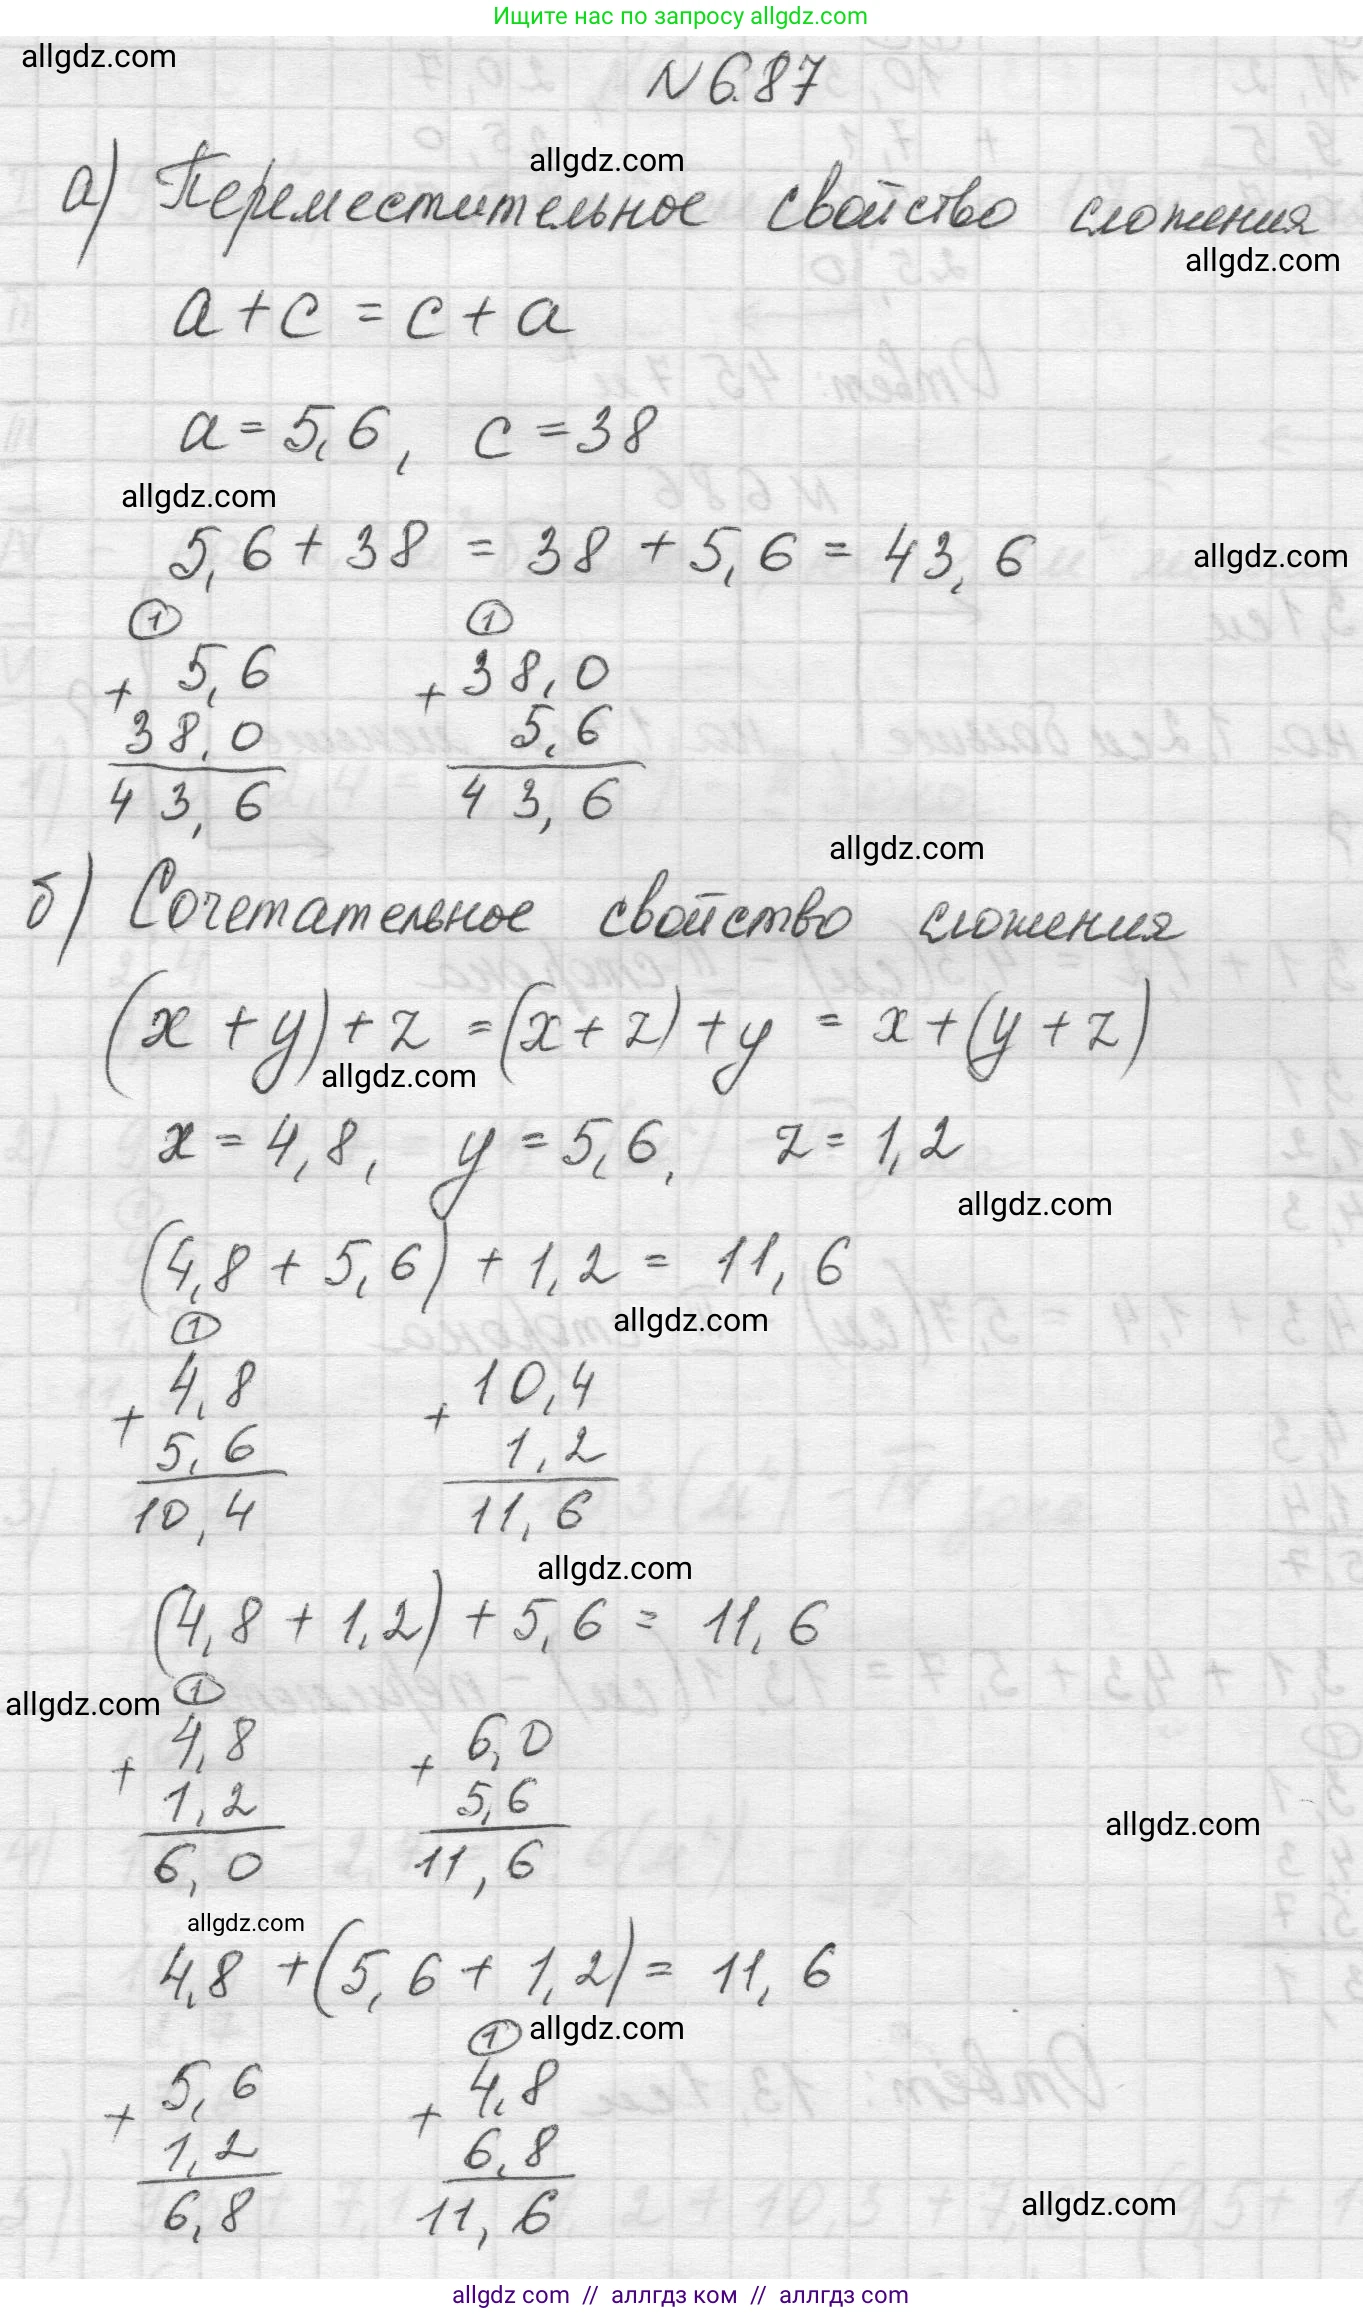 Ищите нас по запросу allgdz.com
allgdz.com
№ 6.87
allgdz.com
а) Переместительное свойство сложения
allgdz.com
a + c = c + a
a = 5,6, c = 38
allgdz.com
5,6 + 38 = 38 + 5,6 = 43,6
allgdz.com
1 1
+ 5,6 + 38,0
38,0 5,6
43,6 43,6
allgdz.com
б) Сочетательное свойство сложения
(x + y) + z = (x + z) + y = x + (y + z)
allgdz.com
x = 4,8, y = 5,6, z = 1,2
allgdz.com
(4,8 + 5,6) + 1,2 = 11,6
allgdz.com
1
+ 4,8 + 10,4
5,6 1,2
10,4 11,6
allgdz.com
(4,8 + 1,2) + 5,6 = 11,6
allgdz.com
1
+ 4,8 + 6,0
1,2 5,6
6,0 11,6
allgdz.com
allgdz.com
4,8 + (5,6 + 1,2) = 11,6
1 allgdz.com
+ 5,6 + 4,8
1,2 6,8
6,8 11,6
allgdz.com
allgdz com // аллгдз ком // аллгдз com